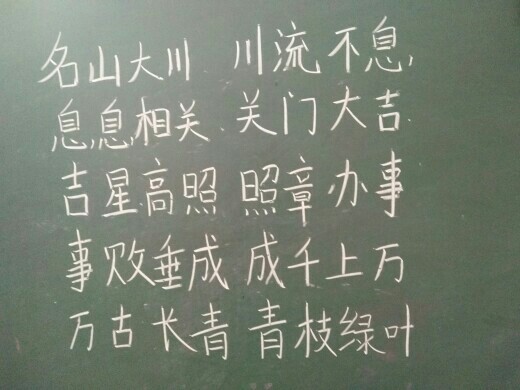 名山大川 川流不息,
息息相关 关门大吉
吉星高照 照章办事
事败垂成 成千上万
万古长青 青枝绿叶